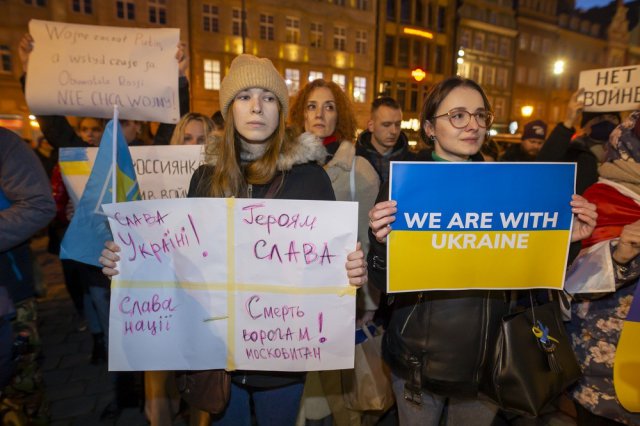 Wojnę zaczął Putin,
a wstyd czuje ja
Obywatele Rosji
NIE CHCĄ WOJNY!
РОССИЯНКА
ИВ ВОЙНЫ
СЛАВА
Україні!
Героям
СЛАВА
Слава
нації
Смерть
ворогам!
москобитан
WE ARE WITH
UKRAINE
НЕТ
ВОЙНЕ